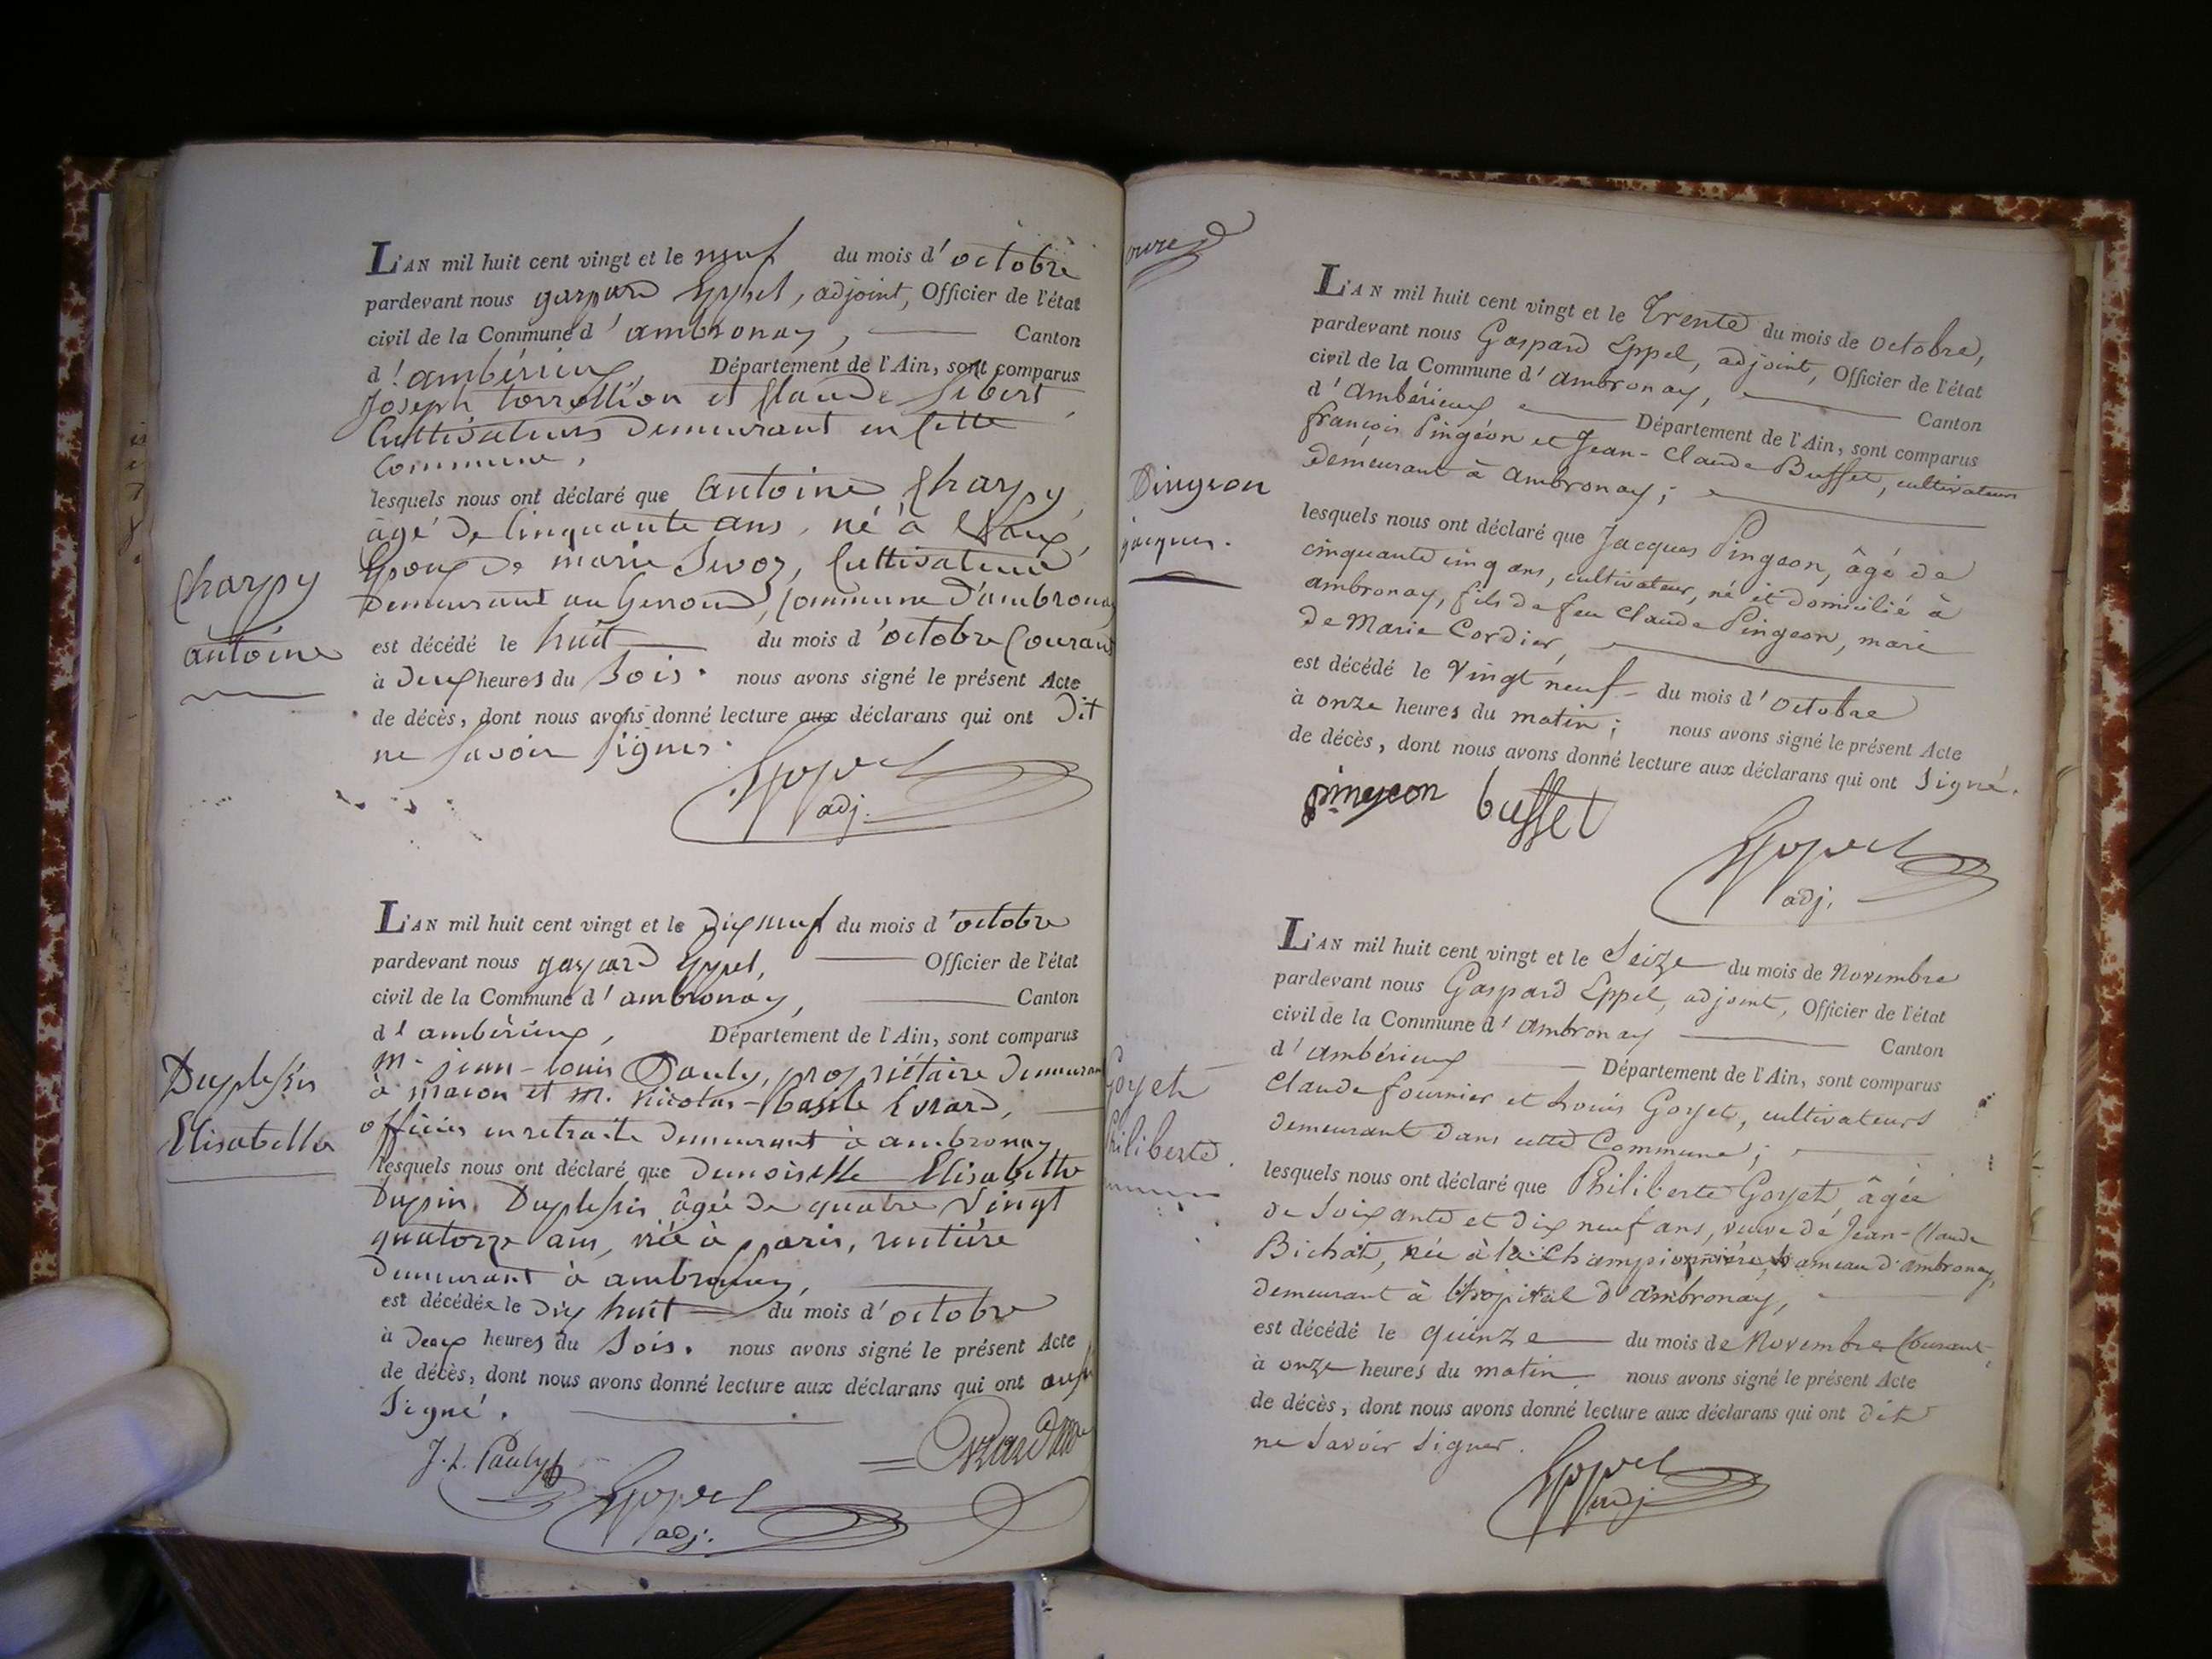 L'AN mil huit cent vingt et le neuf du mois d'octobre
pardevant nous gaspard Eppel, adjoint, Officier de l'état
civil de la Commune d'ambronay, Canton
d'ambérieux, Département de l'Ain, sont comparus
Joseph torrellion et Claude Sibert
Cultivateurs Demeurant en Cette
Commune,
lesquels nous ont déclaré que antoine Charpy,
âgé De Cinquante ans, né à Vaux,
Epoux De marie Sevoz, Cultivateur
Charpy
Demeurant au Genoud, Commune D'ambronay
antoine
est décédé le huit du mois d'octobre Courant
à Deux heures du Soir. nous avons signé le présent Acte
de décès, dont nous avons donné lecture aux déclarans qui ont Dit
ne Savoir Signer.
Eppel
adj.
L'AN mil huit cent vingt et le Dix neuf du mois d'octobre
pardevant nous gaspard Eppel, Officier de l'état
civil de la Commune d'ambronay, Canton
d'ambérieux, Département de l'Ain, sont comparus
Duplessis
Mr. jean-louis Pauly, propriétaire Demeurant
à macon et M. Nicolas-Basile Evrard,
Elisabette
officier en retraite Demeurant à ambronay
lesquels nous ont déclaré que Demoiselle Elisabette
Dupin Duplessis âgée De quatre Vingt
quatorze ans, née à paris, rentière
Demeurant à ambronay,
est décédée le Dix huit du mois d'octobre
à Deux heures du Soir. nous avons signé le présent Acte
de décès, dont nous avons donné lecture aux déclarans qui ont aussi
Signé.
J. L. Pauly
Evrard
Eppel
adj.
L'AN mil huit cent vingt et le Trente du mois de octobre,
pardevant nous Gaspard Eppel, adjoint, Officier de l'état
civil de la Commune d'ambronay, Canton
d'ambérieux Département de l'Ain, sont comparus
françois Pingéon et Jean-Claude Buffet, cultivateurs
Demeurant à ambronay;
Pingeon
lesquels nous ont déclaré que Jacques Pingeon, âgé de
jacques.
cinquante cinq ans, cultivateur, né et domicilié à
ambronay, fils de feu Claude Pingeon, mari
de Marie Cordier,
est décédé le Vingt neuf du mois d'octobre
à onze heures du matin; nous avons signé le présent Acte
de décès, dont nous avons donné lecture aux déclarans qui ont Signé.
pingeon buffet
Eppel
adj.
L'AN mil huit cent vingt et le Seize du mois de Novembre
pardevant nous Gaspard Eppel, adjoint, Officier de l'état
civil de la Commune d'ambronay Canton
d'ambérieux Département de l'Ain, sont comparus
Goyet
Claude fournier et Louis Goyet, cultivateurs
Philiberte.
demeurant dans cette Commune;
lesquels nous ont déclaré que Philiberte Goyet âgée
de Soixante et dix neuf ans, veuve de Jean-Claude
Bichat, née à la Championnière, hameau d'ambronay,
demeurant à l'hopital d'ambronay,
est décédé le quinze du mois de Novembre Courant,
à onze heures du matin. nous avons signé le présent Acte
de décès, dont nous avons donné lecture aux déclarans qui ont dit
ne savoir signer.
Eppel
adj.